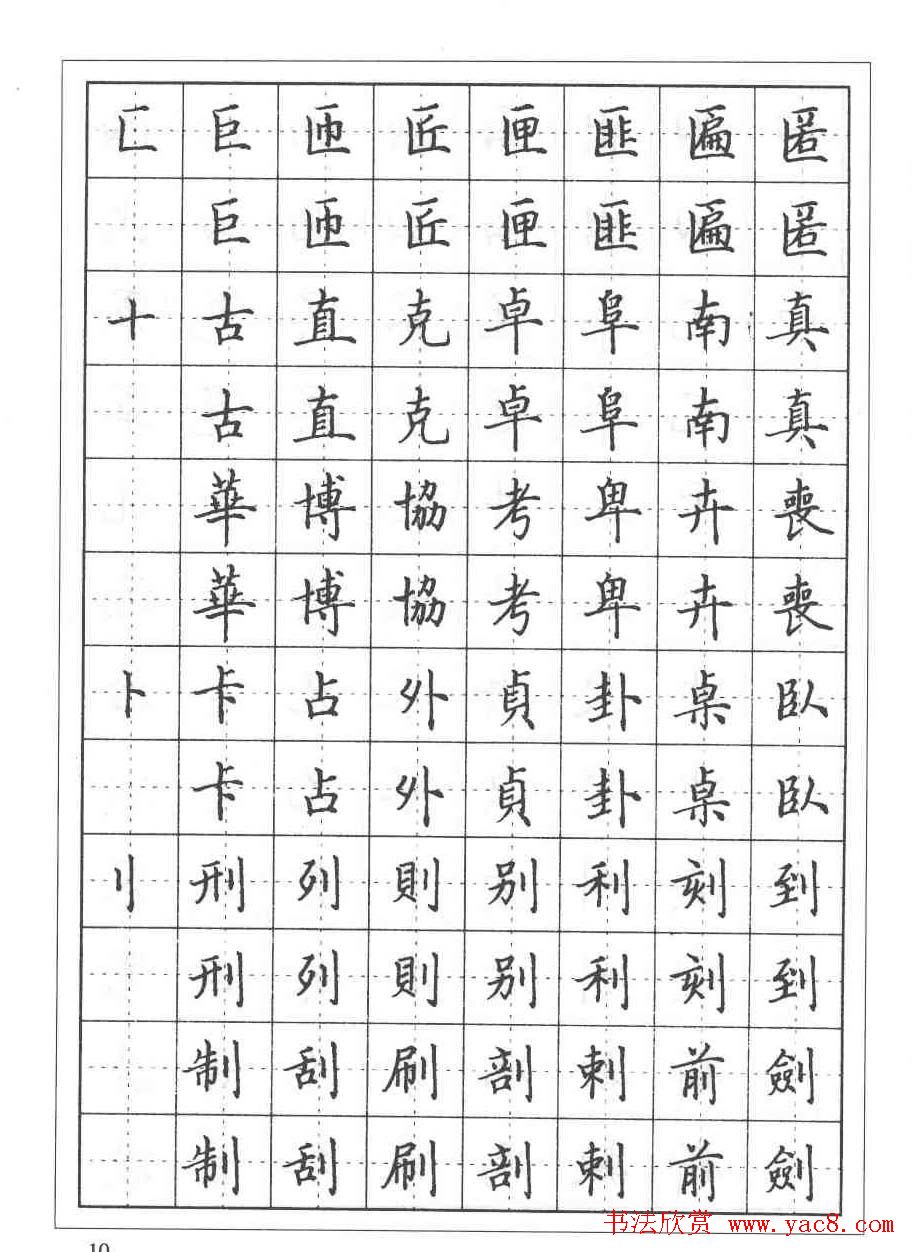 匚 巨 匝 匠 匣 匪 匾 匿
巨 匝 匠 匣 匪 匾 匿
十 古 直 克 卓 阜 南 真
古 直 克 卓 阜 南 真
華 博 協 考 卑 卉 喪
華 博 協 考 卑 卉 喪
卜 卡 占 外 貞 卦 桌 臥
卡 占 外 貞 卦 桌 臥
刂 刑 列 則 别 利 刻 到
刑 列 則 别 利 刻 到
制 刮 刷 剖 刺 前 劍
制 刮 刷 剖 刺 前 劍
书法欣赏 www.yac8.com
10